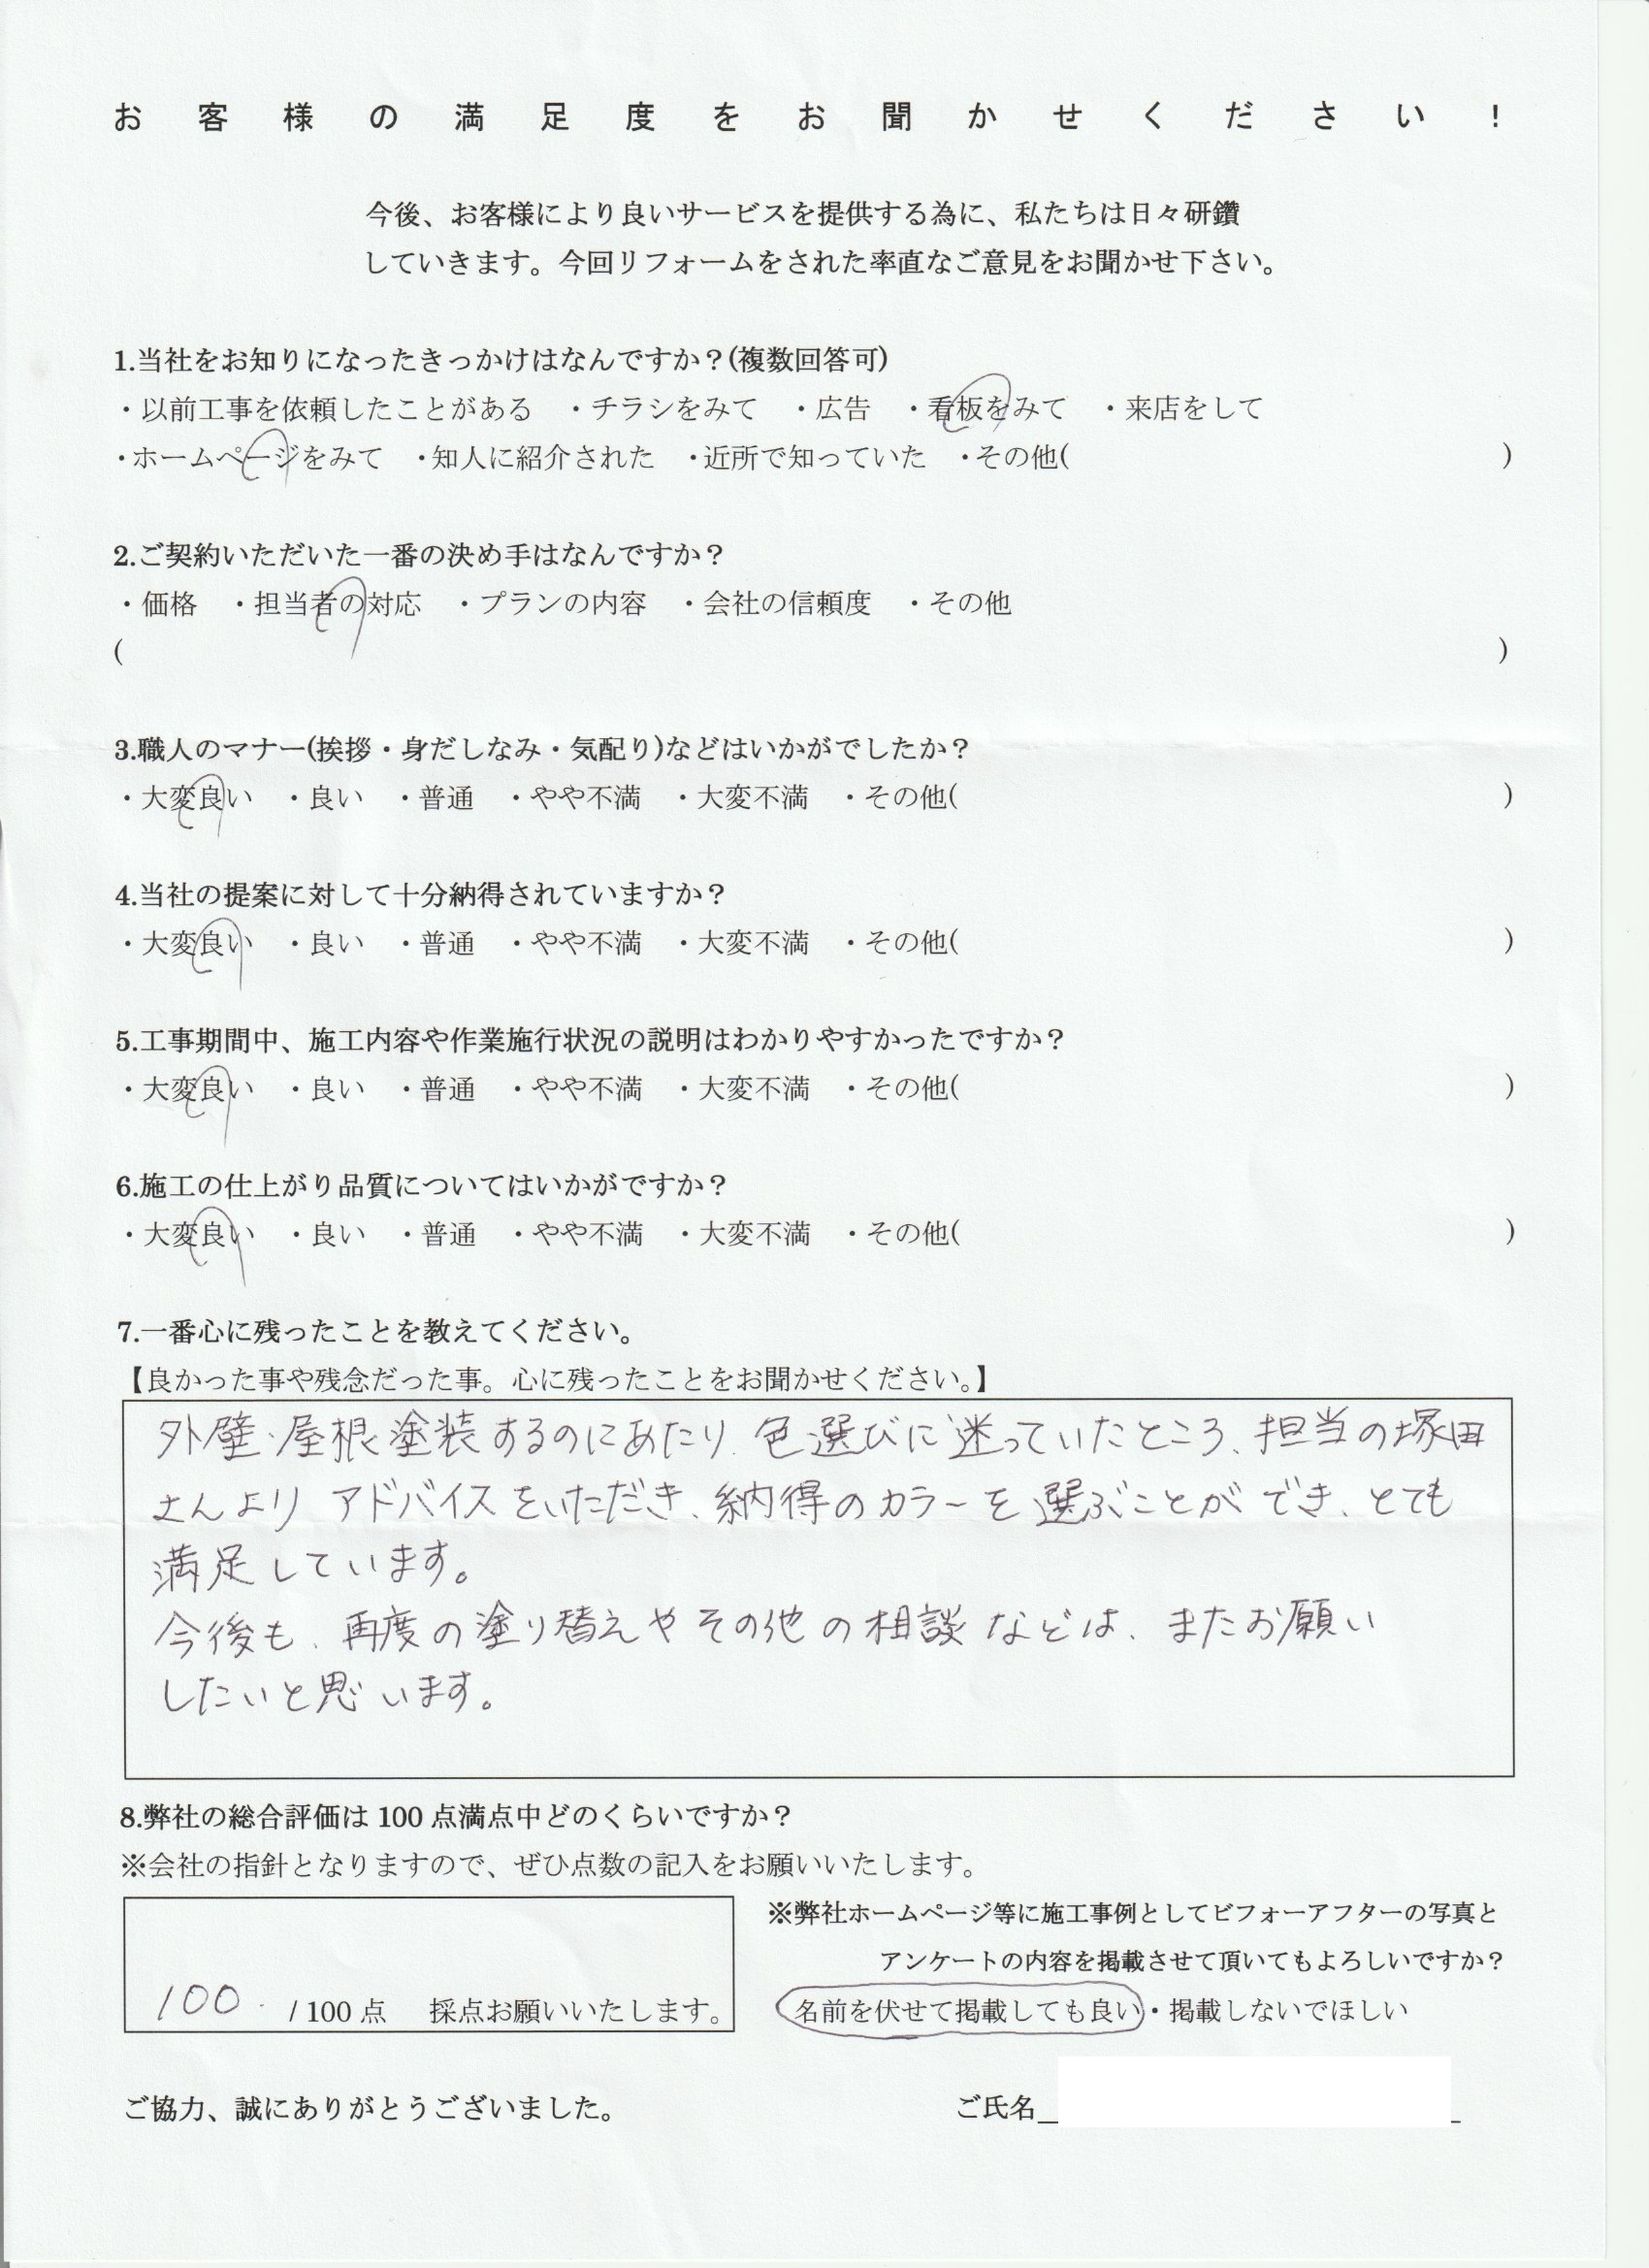 お客様の満足度をお聞かせください!
今後、お客様により良いサービスを提供する為に、私たちは日々研鑽
していきます。今回リフォームをされた率直なご意見をお聞かせ下さい。
1.当社をお知りになったきっかけはなんですか？(複数回答可)
・以前工事を依頼したことがある ・チラシをみて ・広告 ・看板をみて ・来店をして
・ホームページをみて ・知人に紹介された ・近所で知っていた ・その他( )
2.ご契約いただいた一番の決め手はなんですか？
・価格 ・担当者の対応 ・プランの内容 ・会社の信頼度 ・その他
( )
3.職人のマナー(挨拶・身だしなみ・気配り)などはいかがでしたか？
・大変良い ・良い ・普通 ・やや不満 ・大変不満 ・その他( )
4.当社の提案に対して十分納得されていますか？
・大変良い ・良い ・普通 ・やや不満 ・大変不満 ・その他( )
5.工事期間中、施工内容や作業施行状況の説明はわかりやすかったですか？
・大変良い ・良い ・普通 ・やや不満 ・大変不満 ・その他( )
6.施工の仕上がり品質についてはいかがですか？
・大変良い ・良い ・普通 ・やや不満 ・大変不満 ・その他( )
7.一番心に残ったことを教えてください。
【良かった事や残念だった事。心に残ったことをお聞かせください。】
外壁・屋根塗装するのにあたり、色選びに迷っていたところ、担当の塚田
さんより アドバイスをいただき、納得のカラーを選ぶことができ、とても
満足しています。
今後も、再度の塗り替えやその他の相談などは、またお願い
したいと思います。
8.弊社の総合評価は 100 点満点中どのくらいですか？
※会社の指針となりますので、ぜひ点数の記入をお願いいたします。
100 / 100 点 採点お願いいたします。
※弊社ホームページ等に施工事例としてビフォーアフターの写真と
アンケートの内容を掲載させて頂いてもよろしいですか？
名前を伏せて掲載しても良い・掲載しないでほしい
ご協力、誠にありがとうございました。 ご氏名